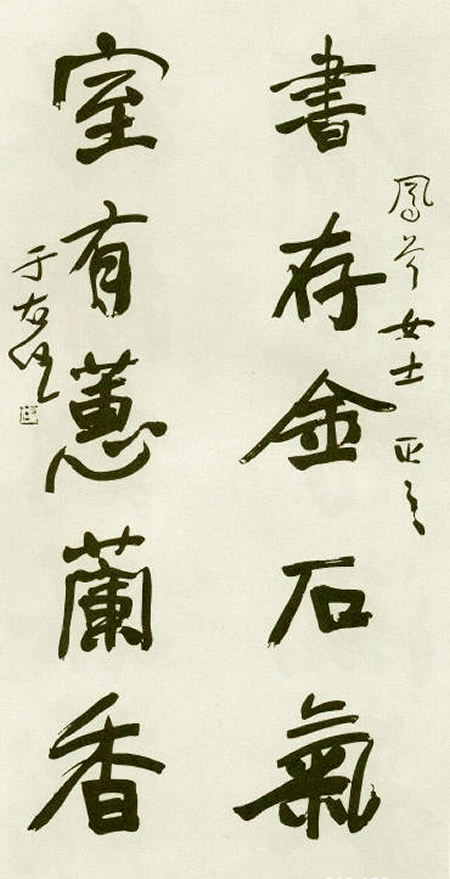 鳳岑女士 正之
書存金石氣
室有蕙蘭香
于右任